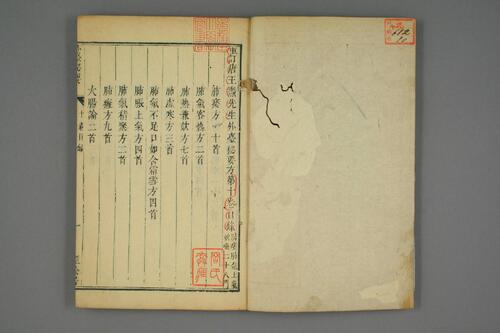 重訂唐王燾先生外臺秘要方第十卷目錄 肺痿肺氣上氣
欬嗽二十八門
肺痿方一十首
肺氣客熱方二首
肺熱兼欬方七首
肺虛寒方三首
肺氣不足口如含霜雪方四首
肺脹上氣方四首
肺氣積聚方二首
肺癰方九首
大腸論二首
十卷目錄